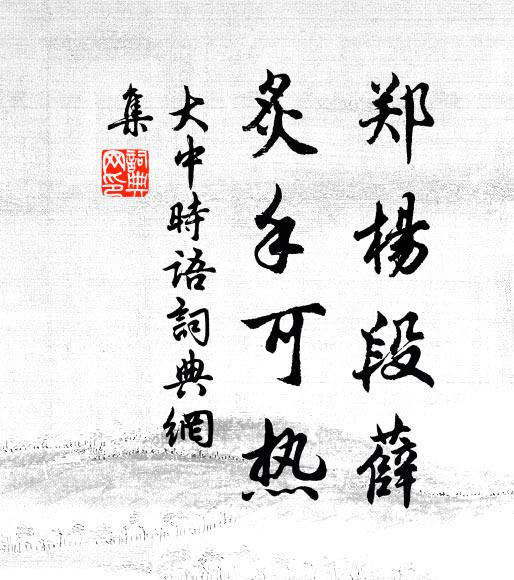 郑楊段薛
炙手可热
大中時语詞典網
集
詞典网印